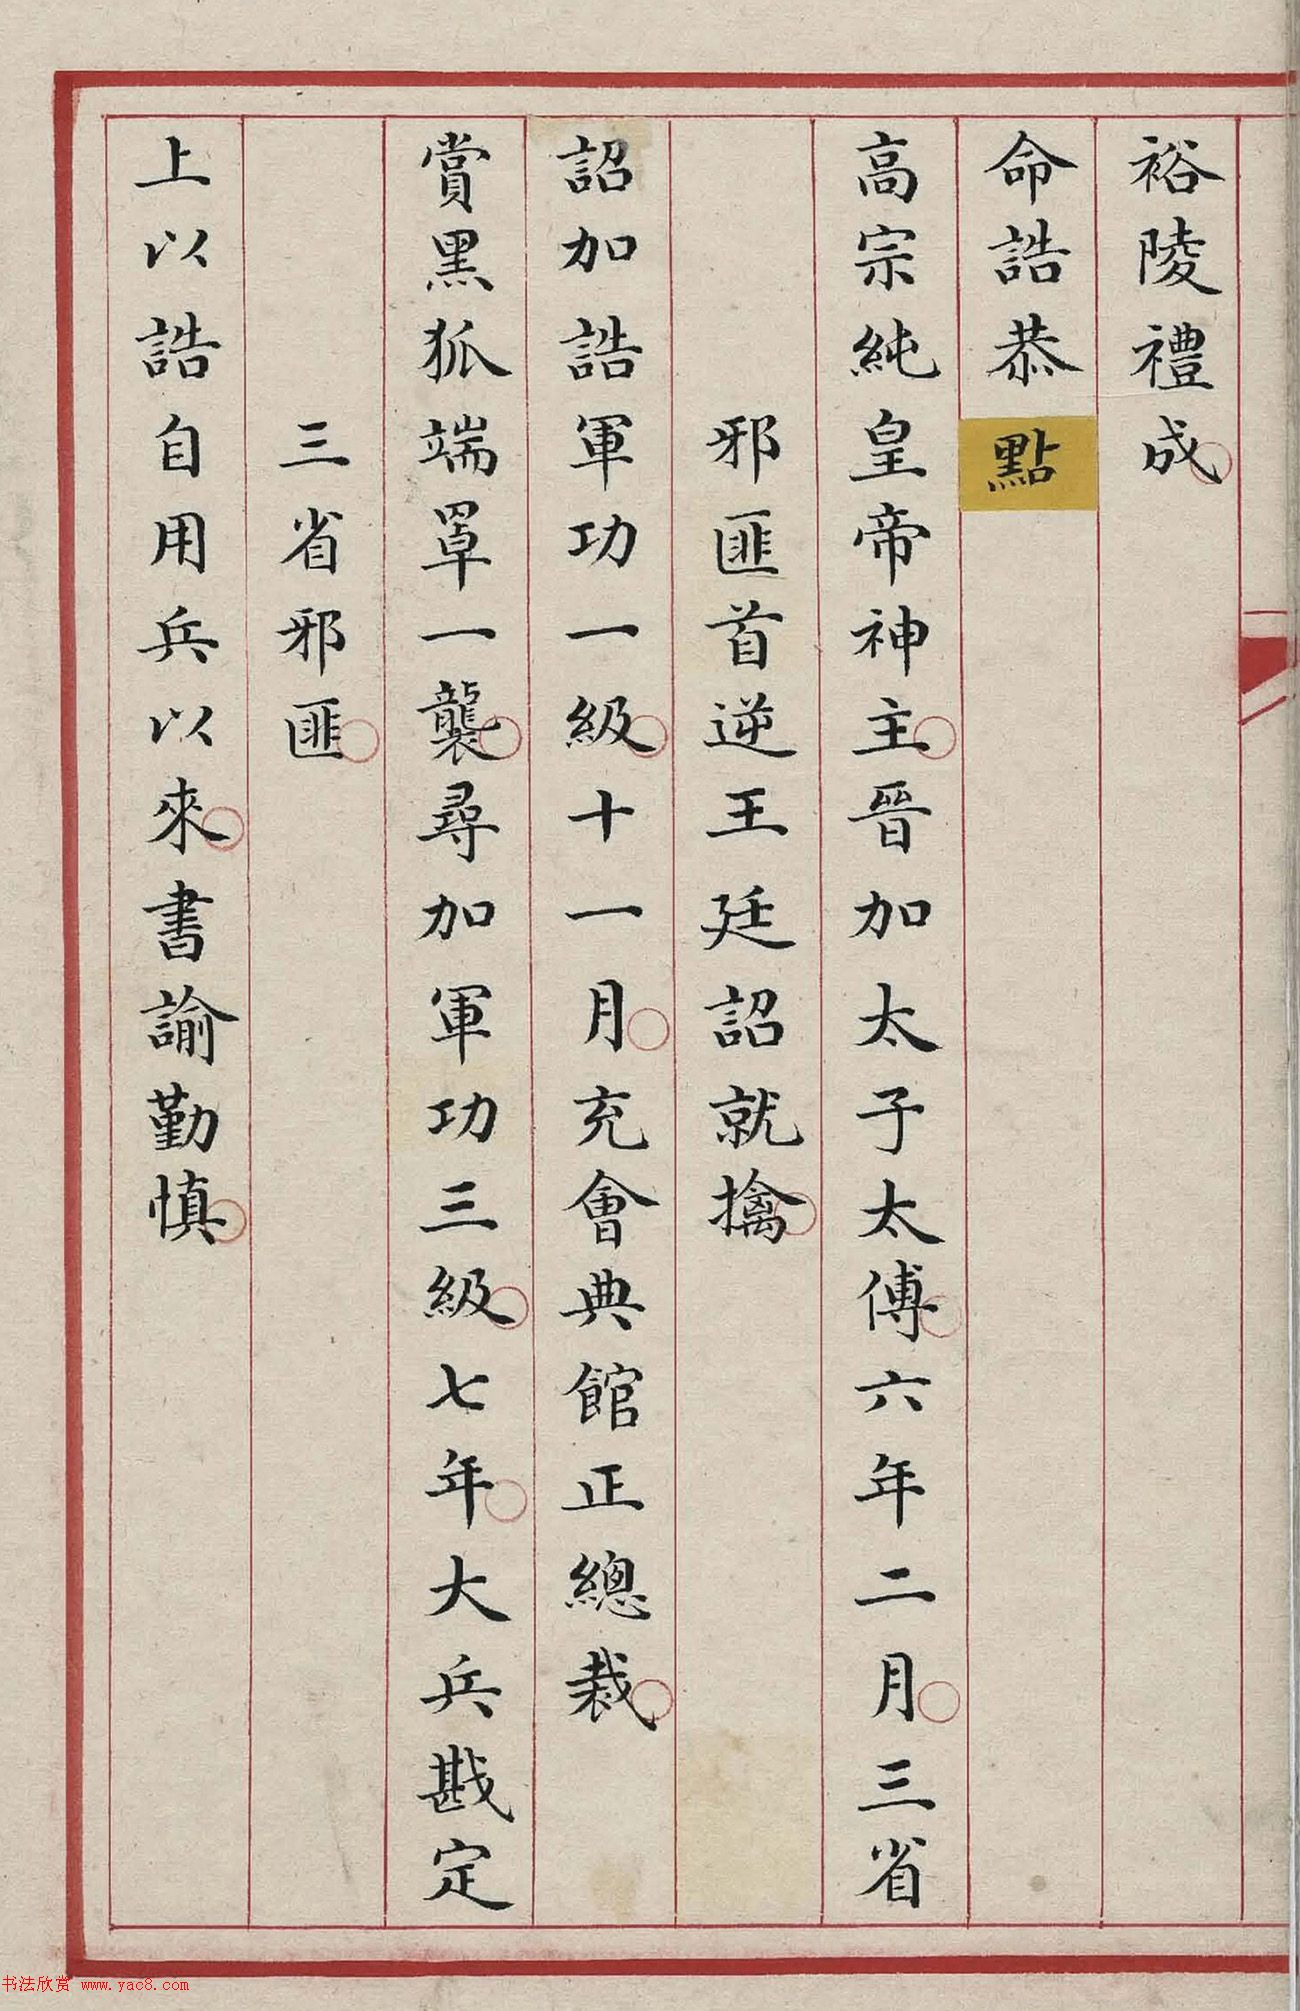 裕陵禮成
命誥恭點
高宗純皇帝神主晉加太子太傅六年二月三省
邪匪首逆王廷詔就擒
詔加誥軍功一級十一月充會典館正總裁
賞黑狐端罩一襲尋加軍功三級七年大兵戡定
三省邪匪
上以誥自用兵以來書諭勤慎
书法欣赏 www.yac8.com